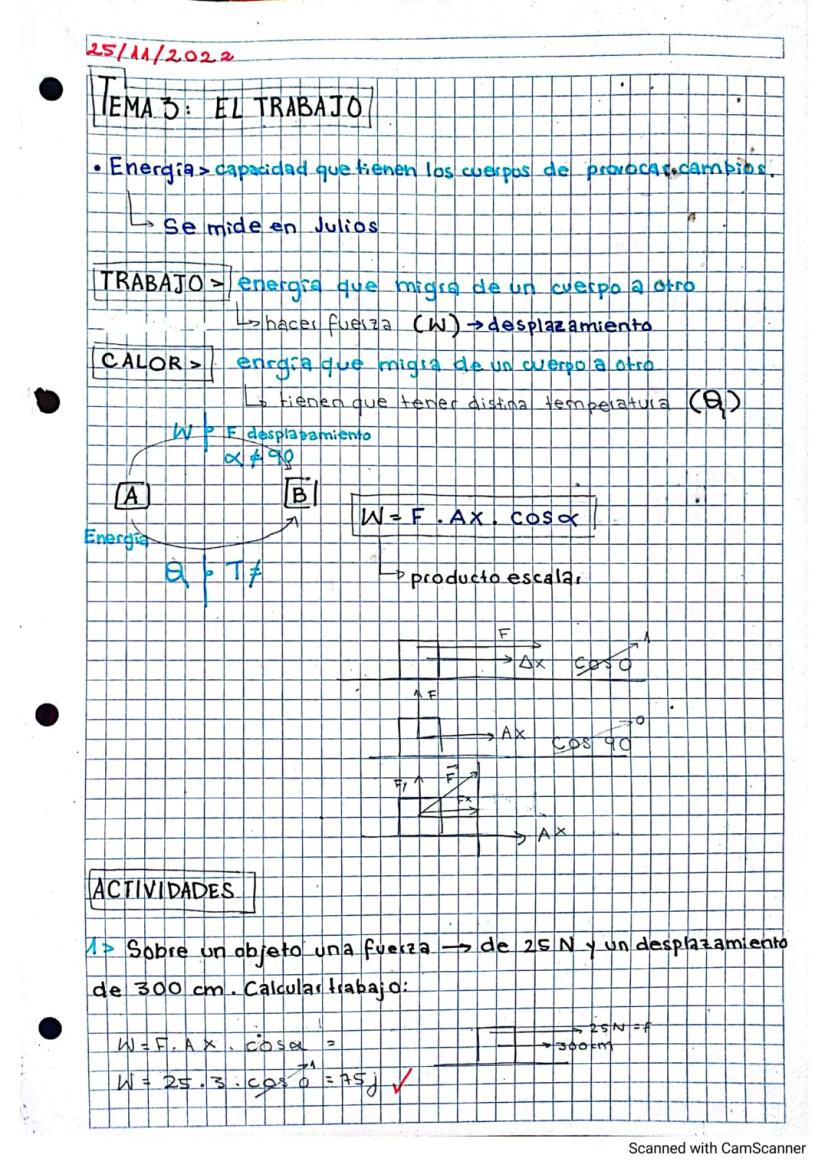 25/11/2022
TEMA 3: EL TRABAJO
• Energía > capacidad que tienen los cuerpos de provocar cambios.
↳ Se mide en Julios
TRABAJO > energía que migra de un cuerpo a otro
↳ hacer fuerza (W) → desplazamiento
CALOR > enrgía que migra de un cuerpo a otro
↳ tienen que tener distina temperatura (Q)
W F desplazamiento
α ≠ 90
A B
W = F . ΔX . cos α
Energía
Q T ≠
↳ producto escalar
F
Δx cos 0 1
F
ΔX cos 90 0
F
Fx
ΔX
ACTIVIDADES
1> Sobre un objeto una fuerza → de 25 N y un desplazamiento
de 300 cm. Calcular trabajo:
25N = f
W = F. ΔX . cos α =
300 cm
W = 25 . 3 . cos 0 1 = 75 j ✓
Scanned with CamScanner